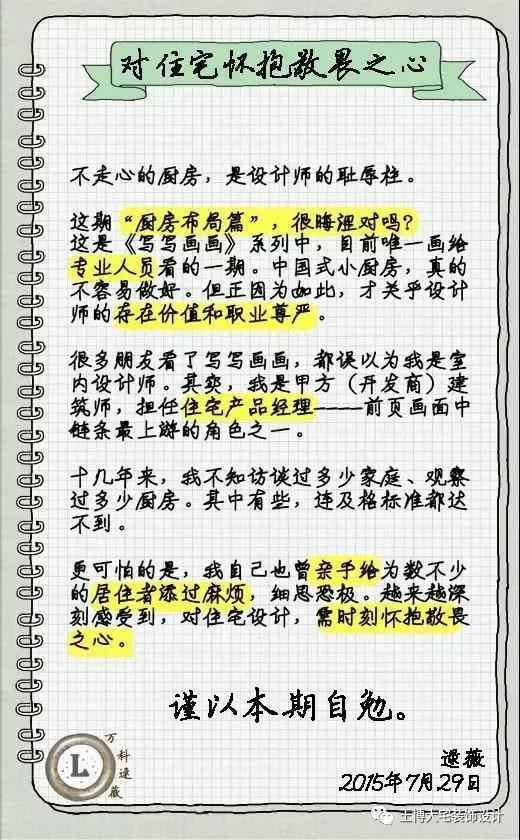 对住宅怀抱敬畏之心
不走心的厨房，是设计师的耻辱柱。
这期“厨房布局篇”，很晦涩对吗？
这是《写写画画》系列中，目前唯一画给
专业人员看的一期。中国式小厨房，真的
不容易做好。但正因为如此，才关乎设计
师的存在价值和职业尊严。
很多朋友看了写写画画，都误以为我是室
内设计师。其实，我是甲方（开发商）建
筑师，担任住宅产品经理-----前页画面中
链条最上游的角色之一。
十几年来，我不知访谈过多少家庭、观察
过多少厨房。其中有些，连及格标准都达
不到。
更可怕的是，我自己也曾亲手给为数不少
的居住者添过麻烦，细思恐极。越来越深
刻感受到，对住宅设计，需时刻怀抱敬畏
之心。
谨以本期自勉。
逯薇
2015年7月29日
L
万科逯薇
土博大宅装饰设计